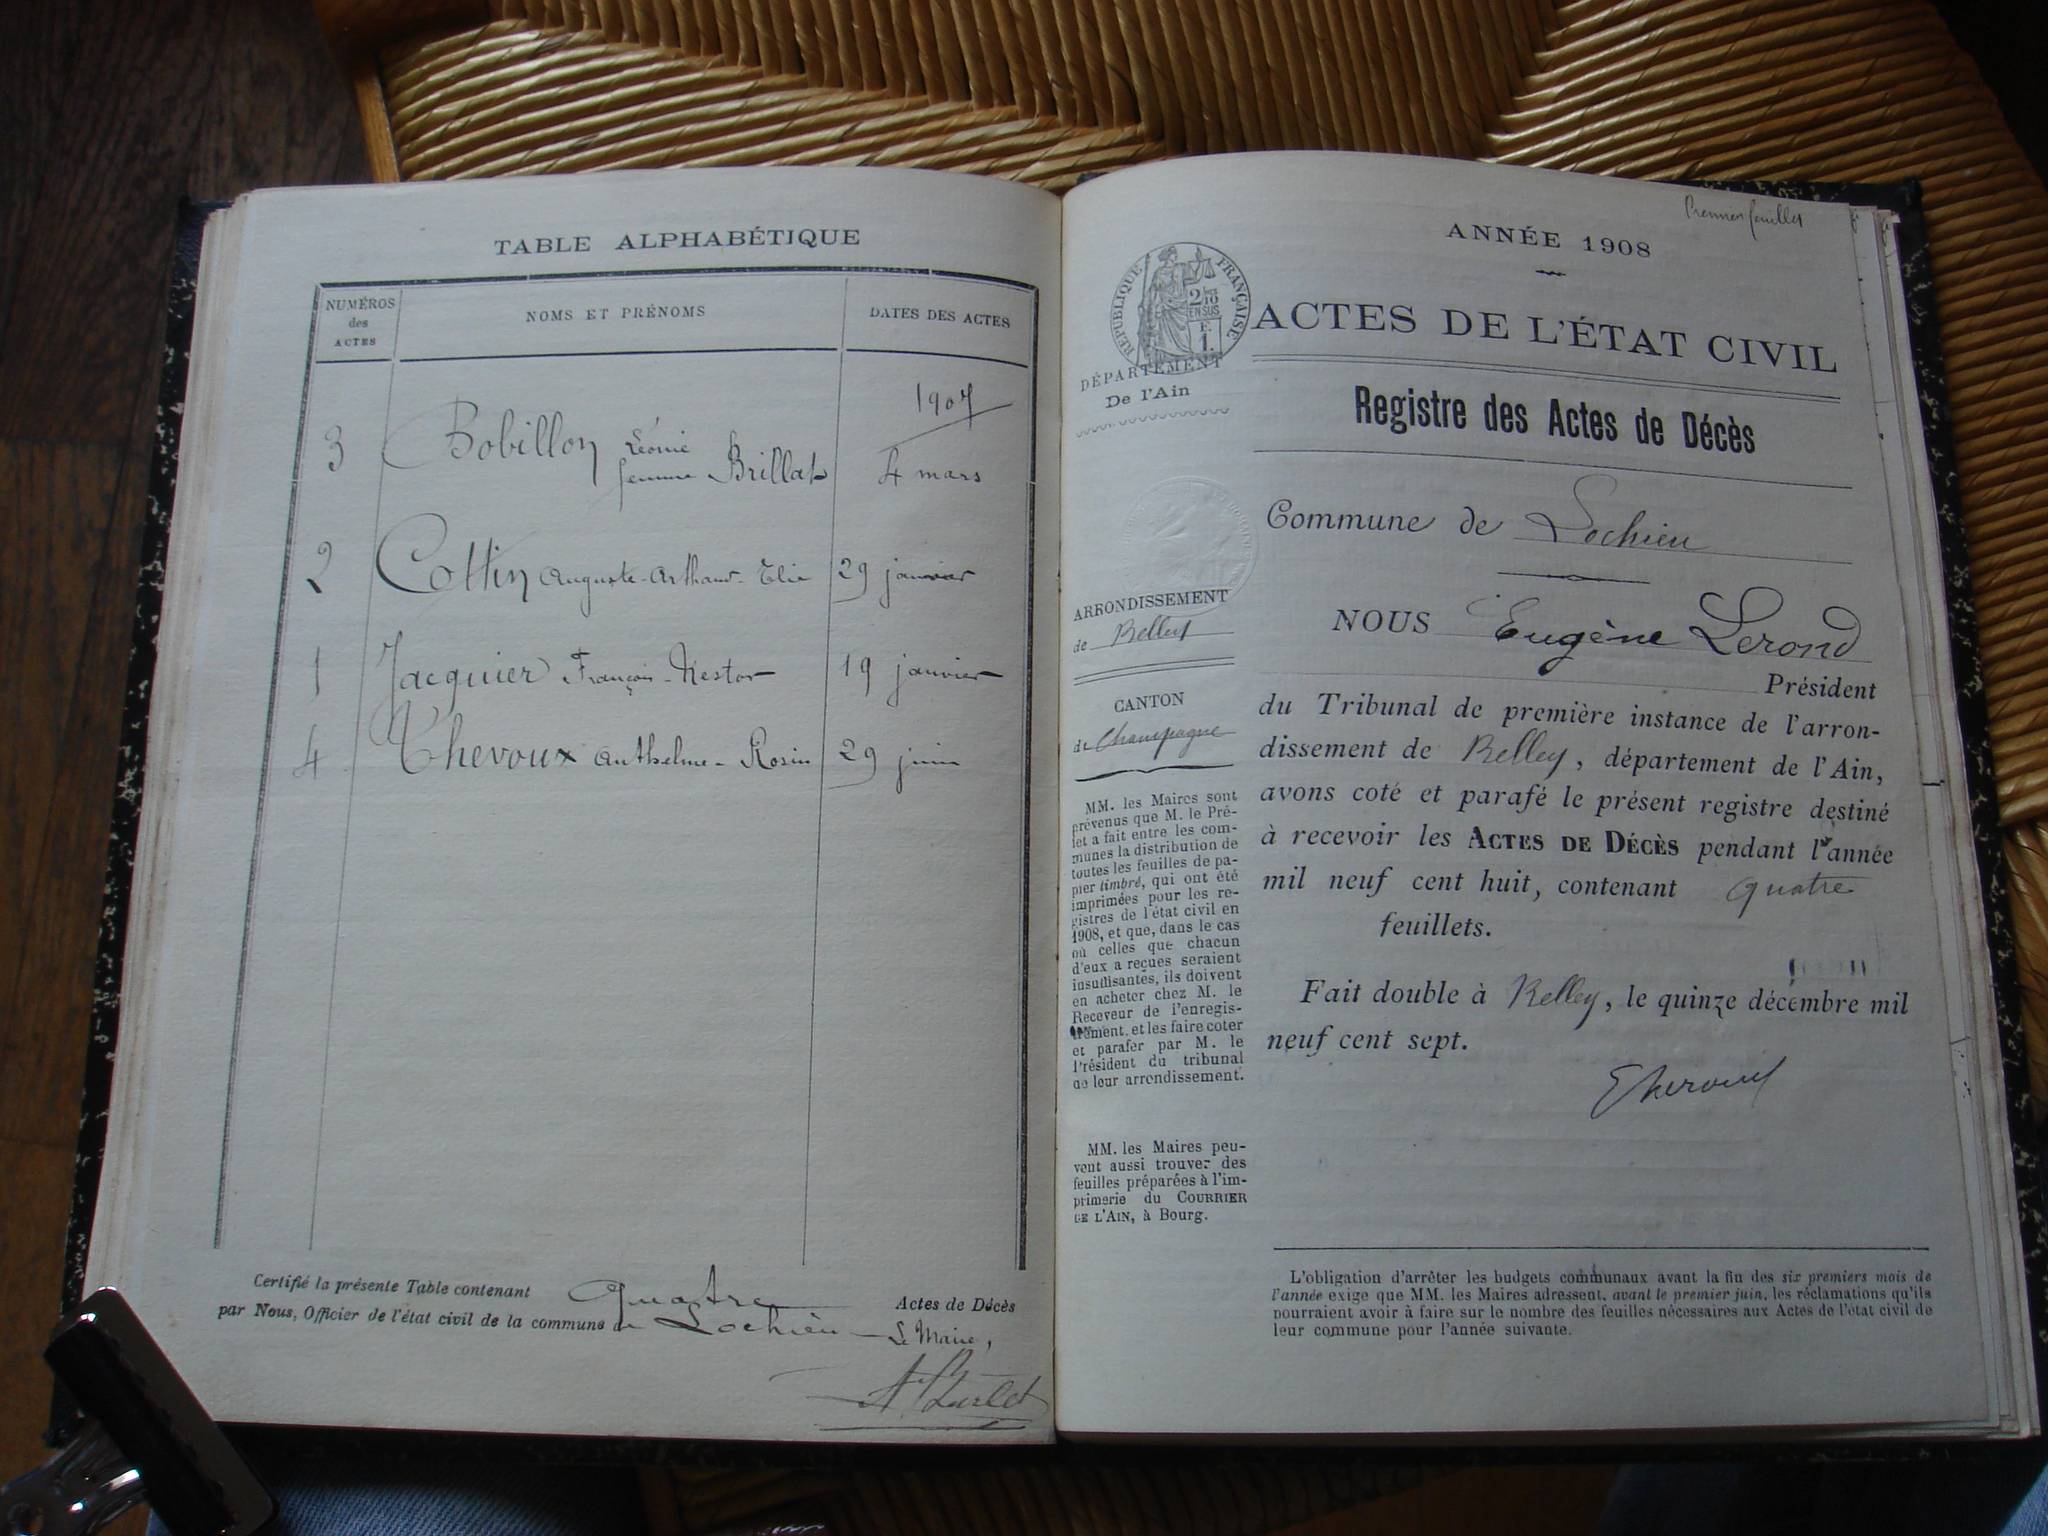 TABLE ALPHABÉTIQUE
NUMÉROS
des
ACTES
NOMS ET PRÉNOMS
DATES DES ACTES
1907
3 Bobillon Léonie
femme Brillat 4 mars
2 Cottin Auguste-Arthaud-Elie 29 janvier
1 Jacquier François-Nestor 19 janvier
4 Thevoux Anthelme-Rosin 29 juin
Certifié la présente Table contenant quatre Actes de Décès
par Nous, Officier de l'état civil de la commune de Lochieu Le Maire,
Premier feuillet
ANNÉE 1908
RÉPUBLIQUE FRANÇAISE
2 10
EN SUS
F.
1.
ACTES DE L'ÉTAT CIVIL
DÉPARTEMENT
De l'Ain
Registre des Actes de Décès
Commune de Lochieu
ARRONDISSEMENT
de Belley
CANTON
de Champagne
MM. les Maires sont
prévenus que M. le Pré-
fet a fait entre les com-
munes la distribution de
toutes les feuilles de pa-
pier timbré, qui ont été
imprimées pour les re-
gistres de l'état civil en
1908, et que, dans le cas
où celles que chacun
d'eux a reçues seraient
insuffisantes, ils doivent
en acheter chez M. le
Receveur de l'enregis-
trement, et les faire coter
et parafer par M. le
Président du tribunal
de leur arrondissement.
MM. les Maires peu-
vent aussi trouver des
feuilles préparées à l'im-
primerie du COURRIER
DE L'AIN, à Bourg.
NOUS Eugène Lerond
Président
du Tribunal de première instance de l'arron-
dissement de Belley, département de l'Ain,
avons coté et parafé le présent registre destiné
à recevoir les ACTES DE DÉCÈS pendant l'année
mil neuf cent huit, contenant quatre
feuillets.
Fait double à Belley, le quinze décembre mil
neuf cent sept.
L'obligation d'arrêter les budgets communaux avant la fin des six premiers mois de
l'année exige que MM. les Maires adressent, avant le premier juin, les réclamations qu'ils
pourraient avoir à faire sur le nombre des feuilles nécessaires aux Actes de l'état civil de
leur commune pour l'année suivante.